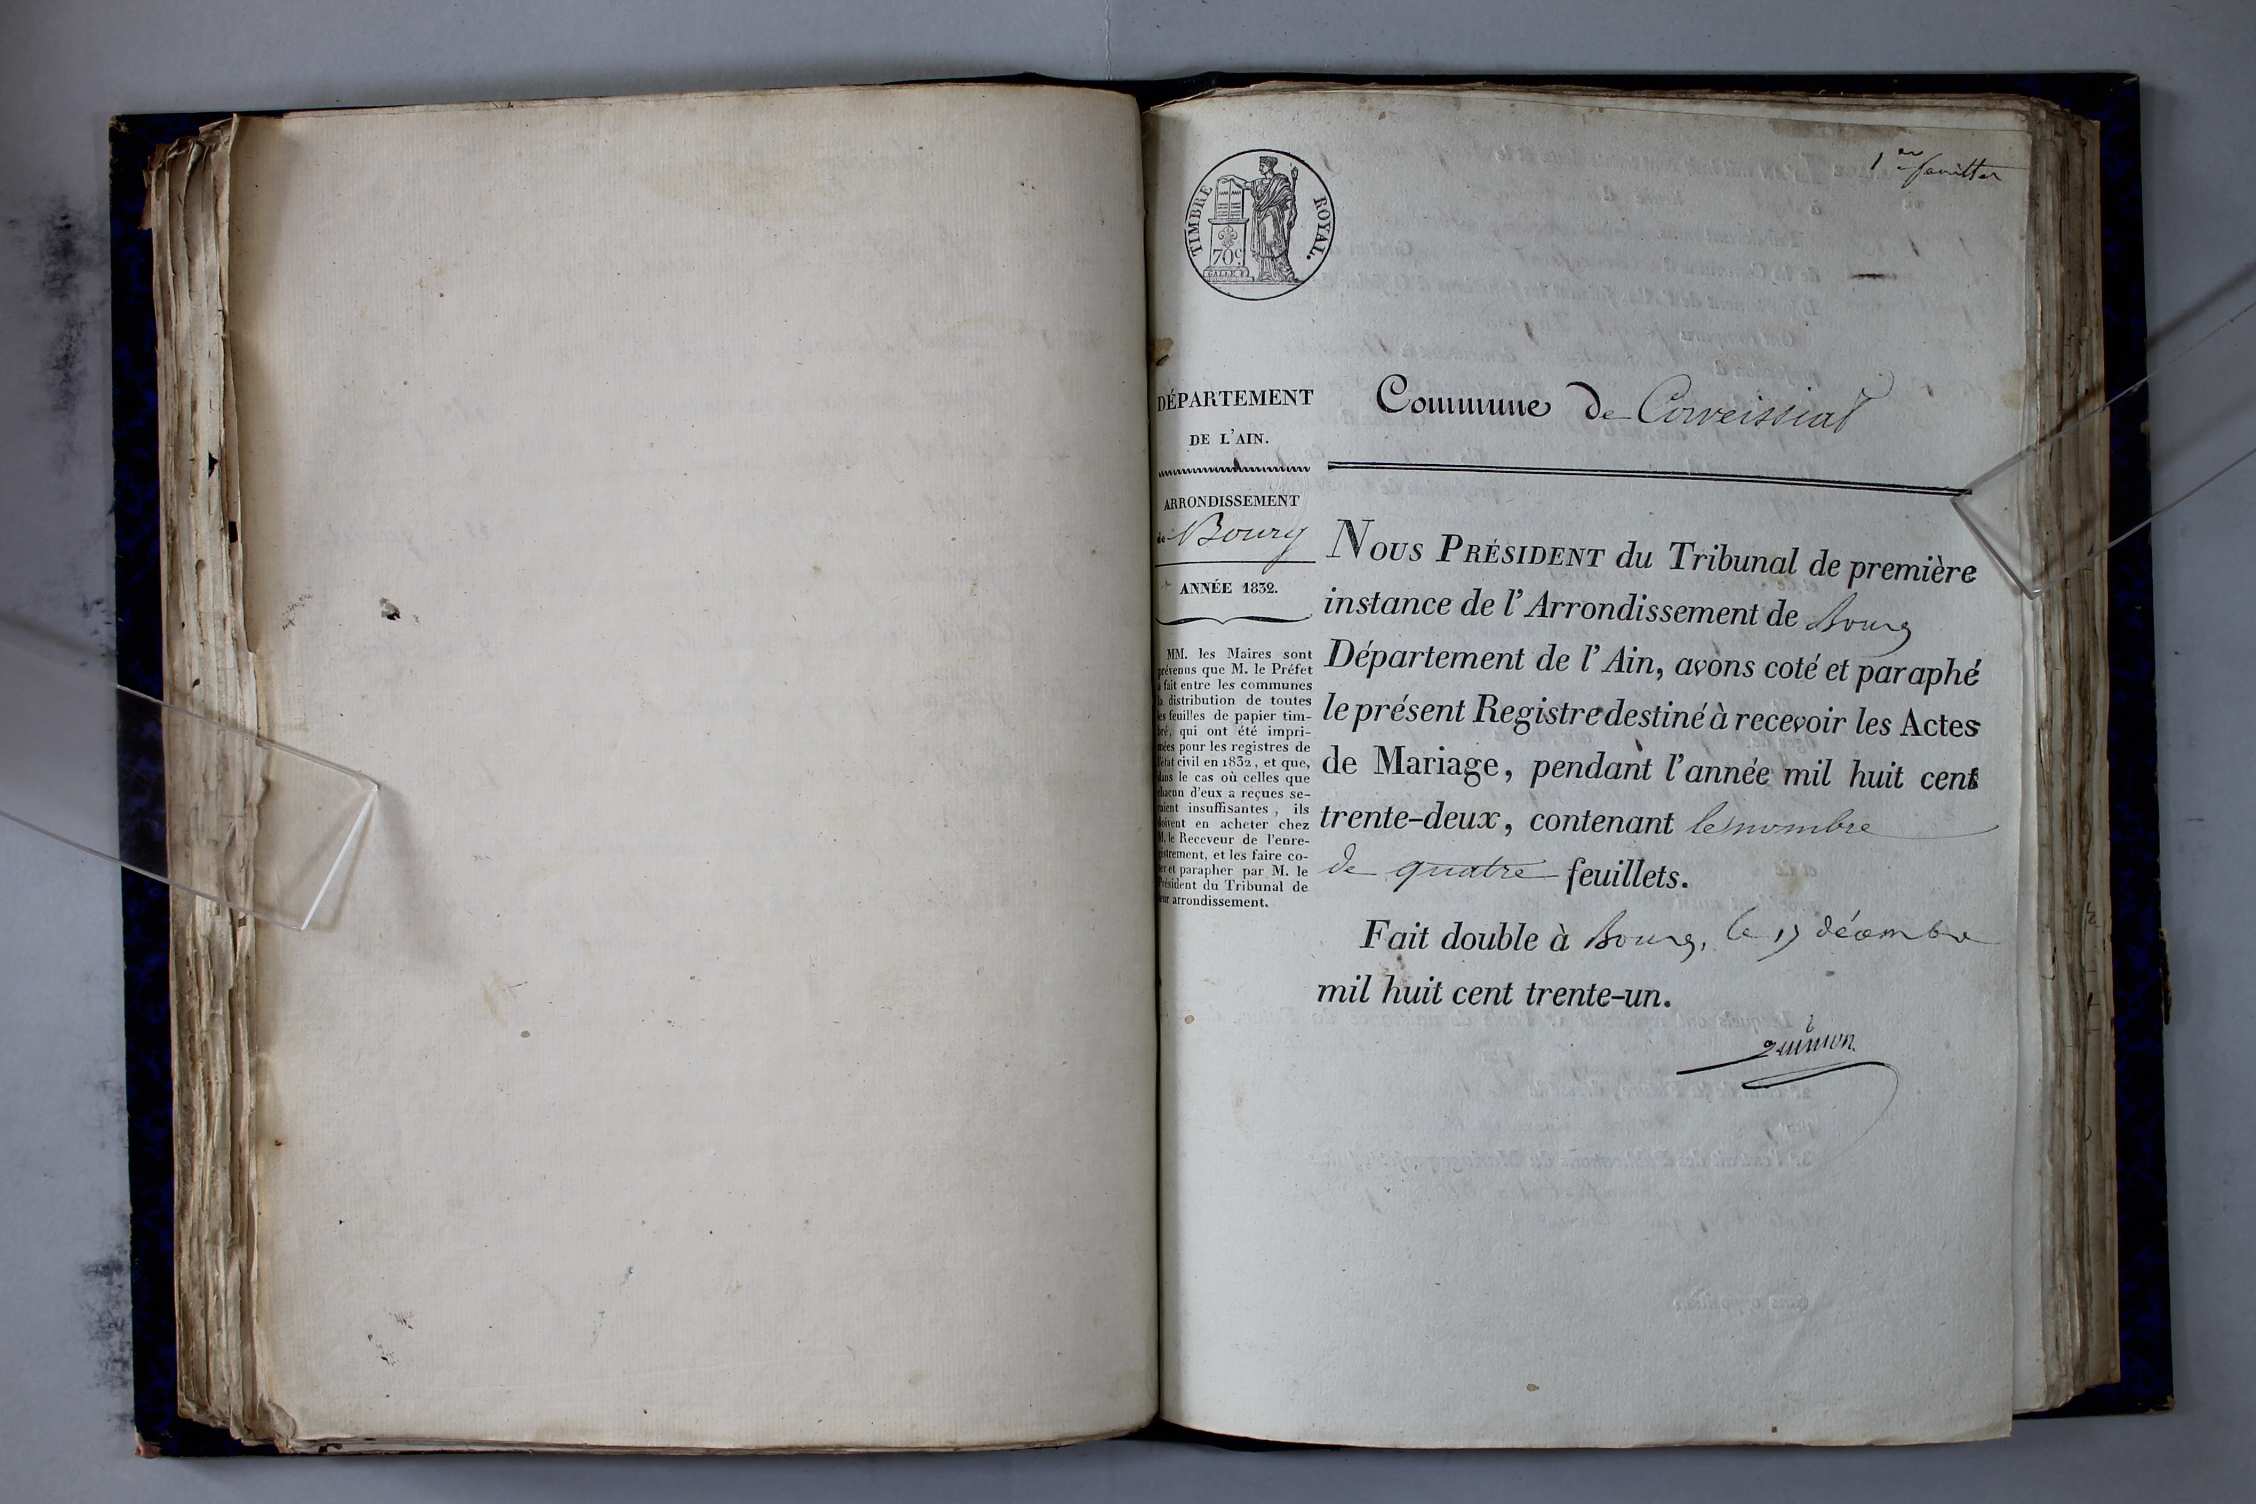 1er feuillet
TIMBRE ROYAL.
70c.
DÉPARTEMENT
DE L'AIN.
ARRONDISSEMENT
de Bourg
ANNÉE 1832.
MM. les Maires sont
prévenus que M. le Préfet
a fait entre les communes
la distribution de toutes
les feuilles de papier tim-
bré, qui ont été impri-
mées pour les registres de
l'état civil en 1832, et que,
dans le cas où celles que
chacun d'eux a reçues se-
raient insuffisantes, ils
doivent en acheter chez
M. le Receveur de l'enre-
gistrement, et les faire co-
ter et parapher par M. le
Président du Tribunal de
leur arrondissement.
Commune de Corveissiat
NOUS PRÉSIDENT du Tribunal de première
instance de l'Arrondissement de Bourg
Département de l'Ain, avons coté et paraphé
le présent Registre destiné à recevoir les Actes
de Mariage, pendant l'année mil huit cent
trente-deux, contenant le nombre
de quatre feuillets.
Fait double à Bourg, le 17 décembre
mil huit cent trente-un.